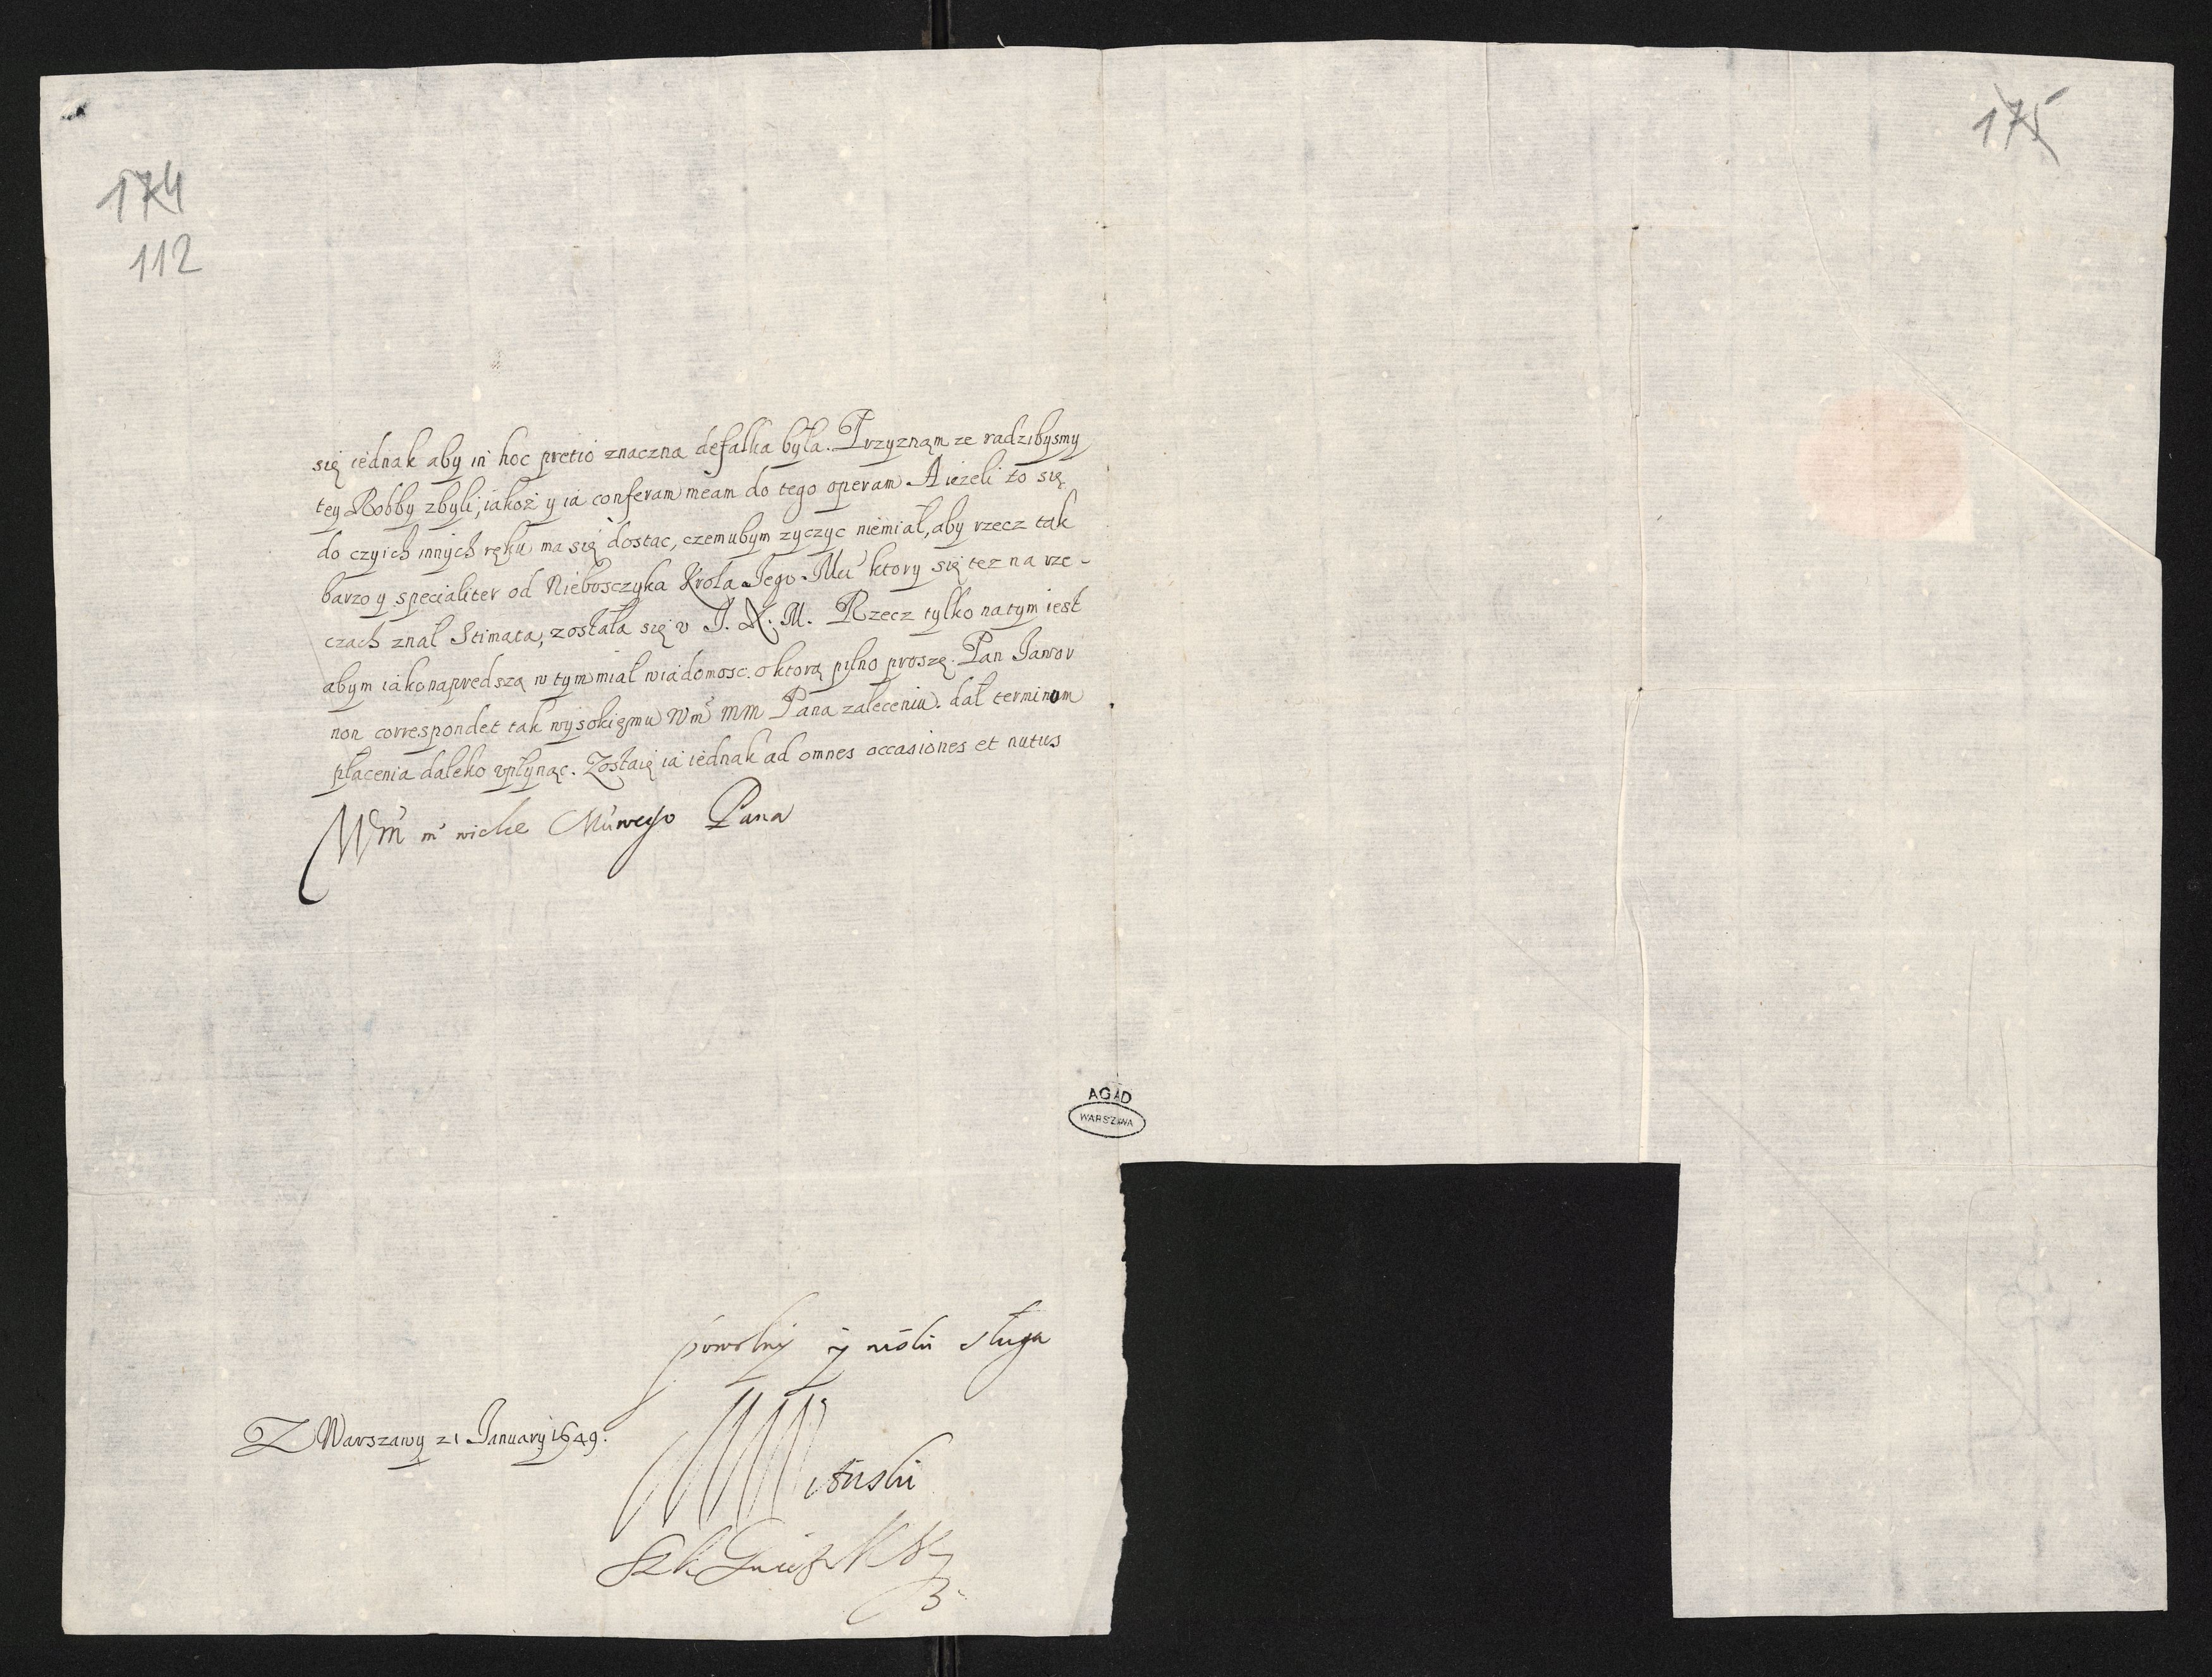 174
112
175
się iednak aby in hoc pretio znaczna defalka była. Przyznąm ze radzibysmy
tey Robby zbyli; iakoz y ia conferam meam do tego operam. A iezeli to się
do czyich innych ręku ma się dostac, czemubym zyczyc niemiał, aby rzecz tak
barzo y specialiter od Nieboszczyka Krola Jego Mci ktory się tez na rze-
czach znał Stimata, zostala się v J. K. M. Rzecz tylko na tym iest
abym iako napredszą w tym miał wiadomosc. o ktorą pilno proszę. Pan Jawor
non correspondet tak wysokięmu Wm̃ mm Pana zaleceniu. dał terminom
płacenia daleko vplynąc. Zostaię ia iednak ad omnes occasiones et nutus
Wm̃ m wielce Mciwego Pana
AGAD
WARSZAWA
powolny y niski sługa
Z Warszawy 21 January 1649.